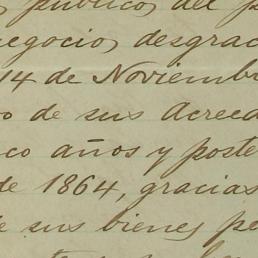 publicos, del p
negocio, desgrac
14 de Noviemb
o de sus Acreed
co años y poste
de 1864, gracias
e sus bienes pe